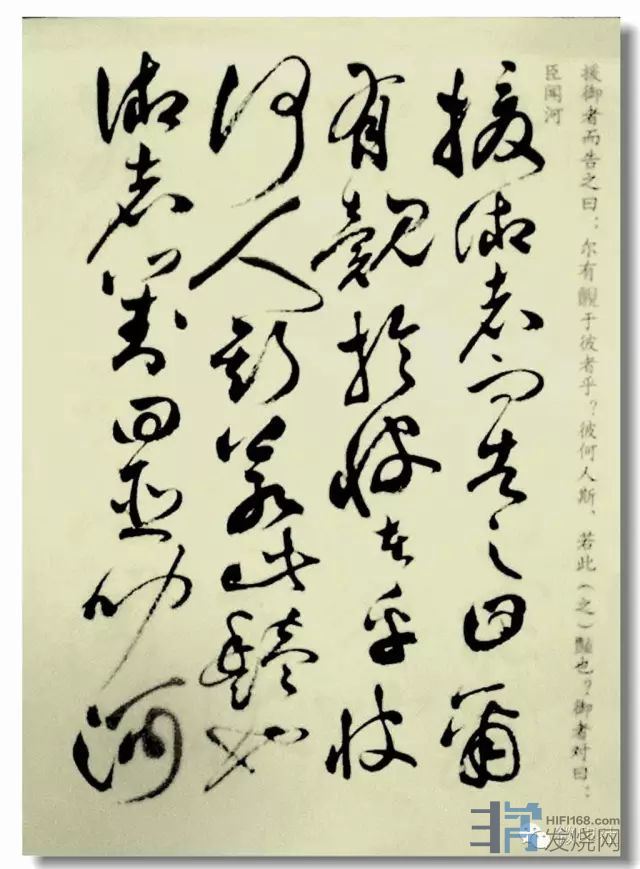 援御者而告之曰：尔有覿于彼者乎？彼何人斯、若此（之）豔也？御者对曰：
臣闻河
援御者而告之曰爾
有覿於彼者乎彼
何人斯若此豔也
御者對曰臣聞河
HIFI168.com
发烧网